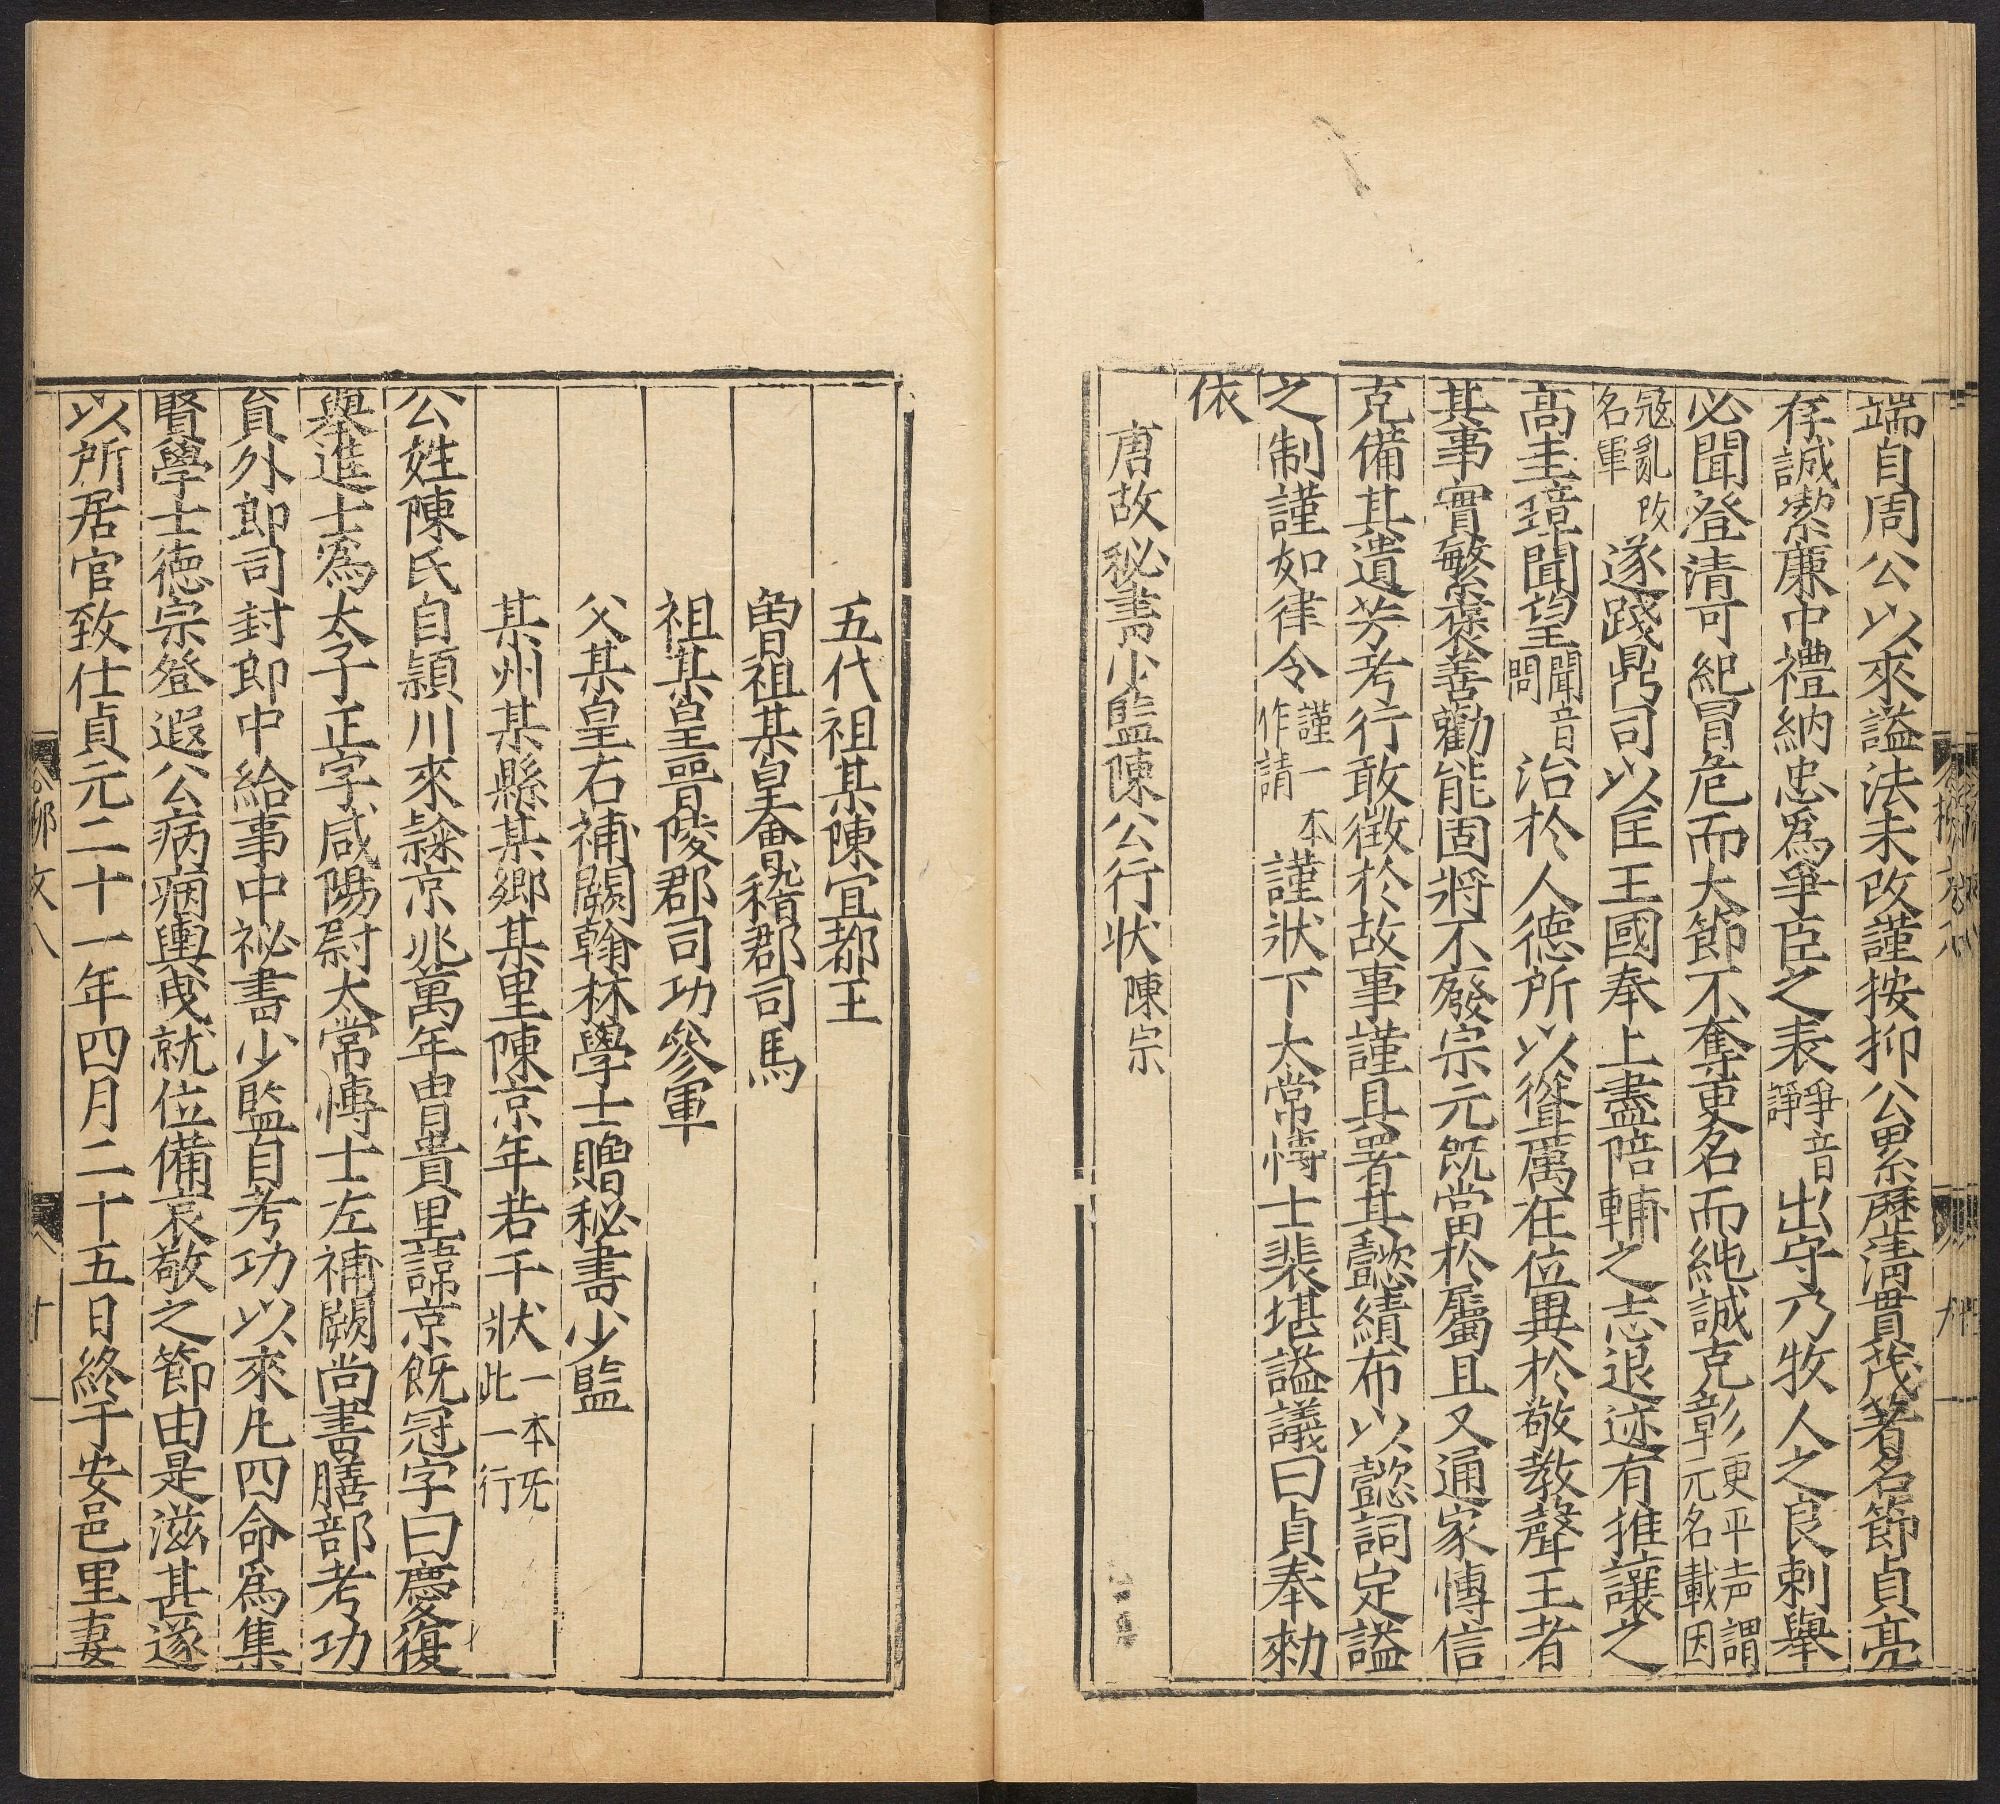 端自周公以來謚法未改謹按抑公累歷清貫茂著名節貞亮
存誠潔廉中禮納忠為爭臣之表爭音諍出守乃牧人之良刺舉
必聞登清可紀冒危而大節不奪更名而純誠克彰更平声謂元名載因
寇亂改名軍遂踐鼎司以匡王國奉上盡陪輔之志退迹有推讓之
高圭璋聞望聞音問治於人德所以聳厲在位異於敬教聲王者
其事實繁褒善勸能固將不廢宗元旣當於屬且又通家愽信
克備其遺芳考行敢徴於故事謹具署其懿績布以懿詞定謚
之制謹如律令謹一本作請謹狀下太常愽士裴堪謚議曰貞奉勑
依
唐故秘書少監陳公行状陳宗
五代祖某陳宜都王
曾祖某皇會稽郡司馬
祖某皇晉陵郡司功參軍
父某皇右補闕翰林學士贈秘書少監
某州某縣某鄉某里陳京年若干狀一本旡此一行
公姓陳氏自潁川來隸京兆萬年冑貴里諱京旣冠字曰慶復
舉進士為太子正字咸陽尉太常愽士左補闕尚書膳部考功
貟外郎司封郎中給事中祕書少監自考功以來凡四命為集
賢學士德宗登遐公病痼輿曵就位備哀敬之節由是滋甚遂
以所居官致仕貞元二十一年四月二十五日終于安邑里妻
柳文八
十